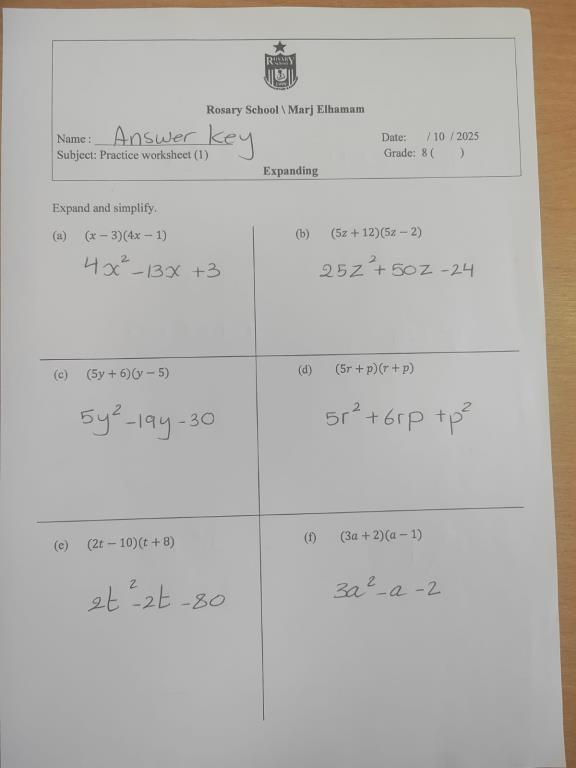 ROSARY
SCHOOL
Rosary School \ Marj Elhamam
Name : Answer key
Date: / 10 / 2025
Subject: Practice worksheet (1)
Grade: 8 ( )
Expanding
Expand and simplify.
(a) (x − 3)(4x − 1)
4x² - 13x + 3
(b) (5z + 12)(5z − 2)
25z² + 50z - 24
(c) (5y + 6)(y − 5)
5y² - 19y - 30
(d) (5r + p)(r + p)
5r² + 6rp + p²
(e) (2t − 10)(t + 8)
2t² - 2t - 80
(f) (3a + 2)(a − 1)
3a² - a - 2